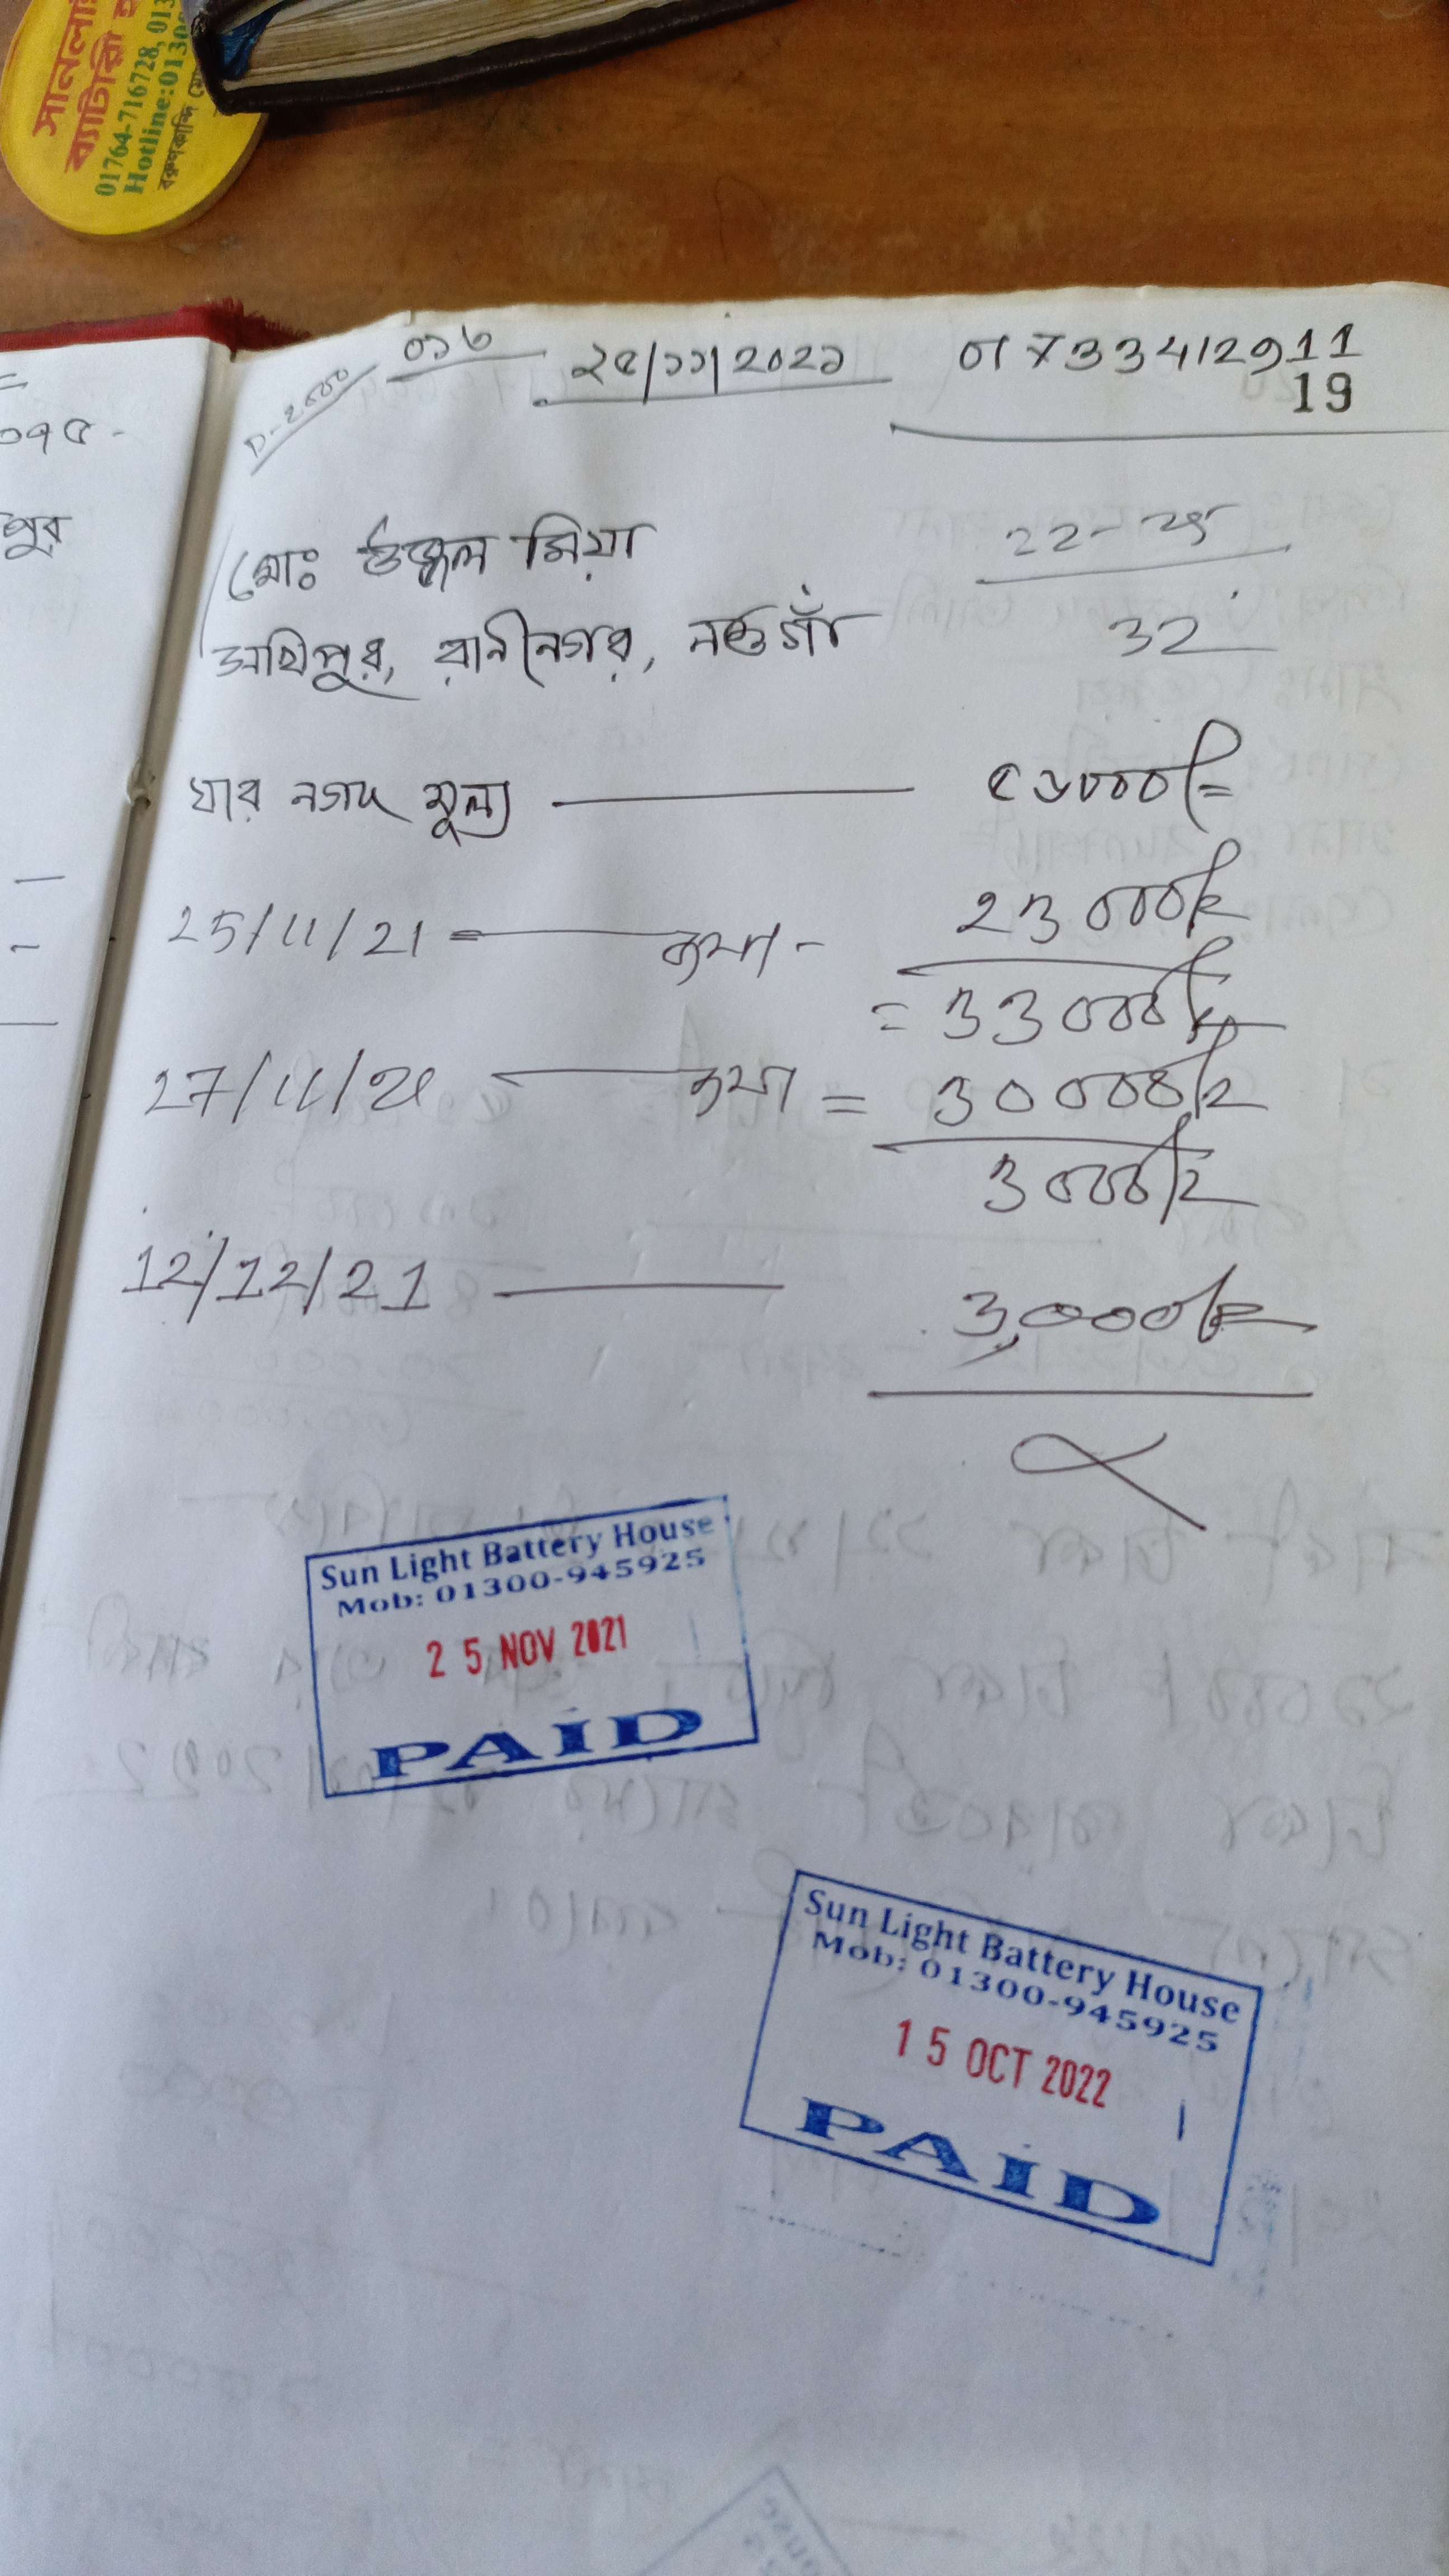 সানলাই
ব্যাটারী হ
01764-716728, 013
Hotline:0130
D-2000
০১৬
২৫/১১/2021
01733412911
19
০৭৫-
পুর
মোঃ উজ্জ্বল মিয়া
রানীনগর, নওগাঁ
22-
32
যার নগদ মূল্য — ৫৬০০০/=
25/11/21 = — জমা - 23000/=
= 33000/=
27/11/21 — জমা = 30000/=
3000/=
12/12/21 — 3,000/=
Sun Light Battery House
Mob: 01300-945925
25 NOV 2021
PAID
Sun Light Battery House
Mob: 01300-945925
15 OCT 2022
PAID